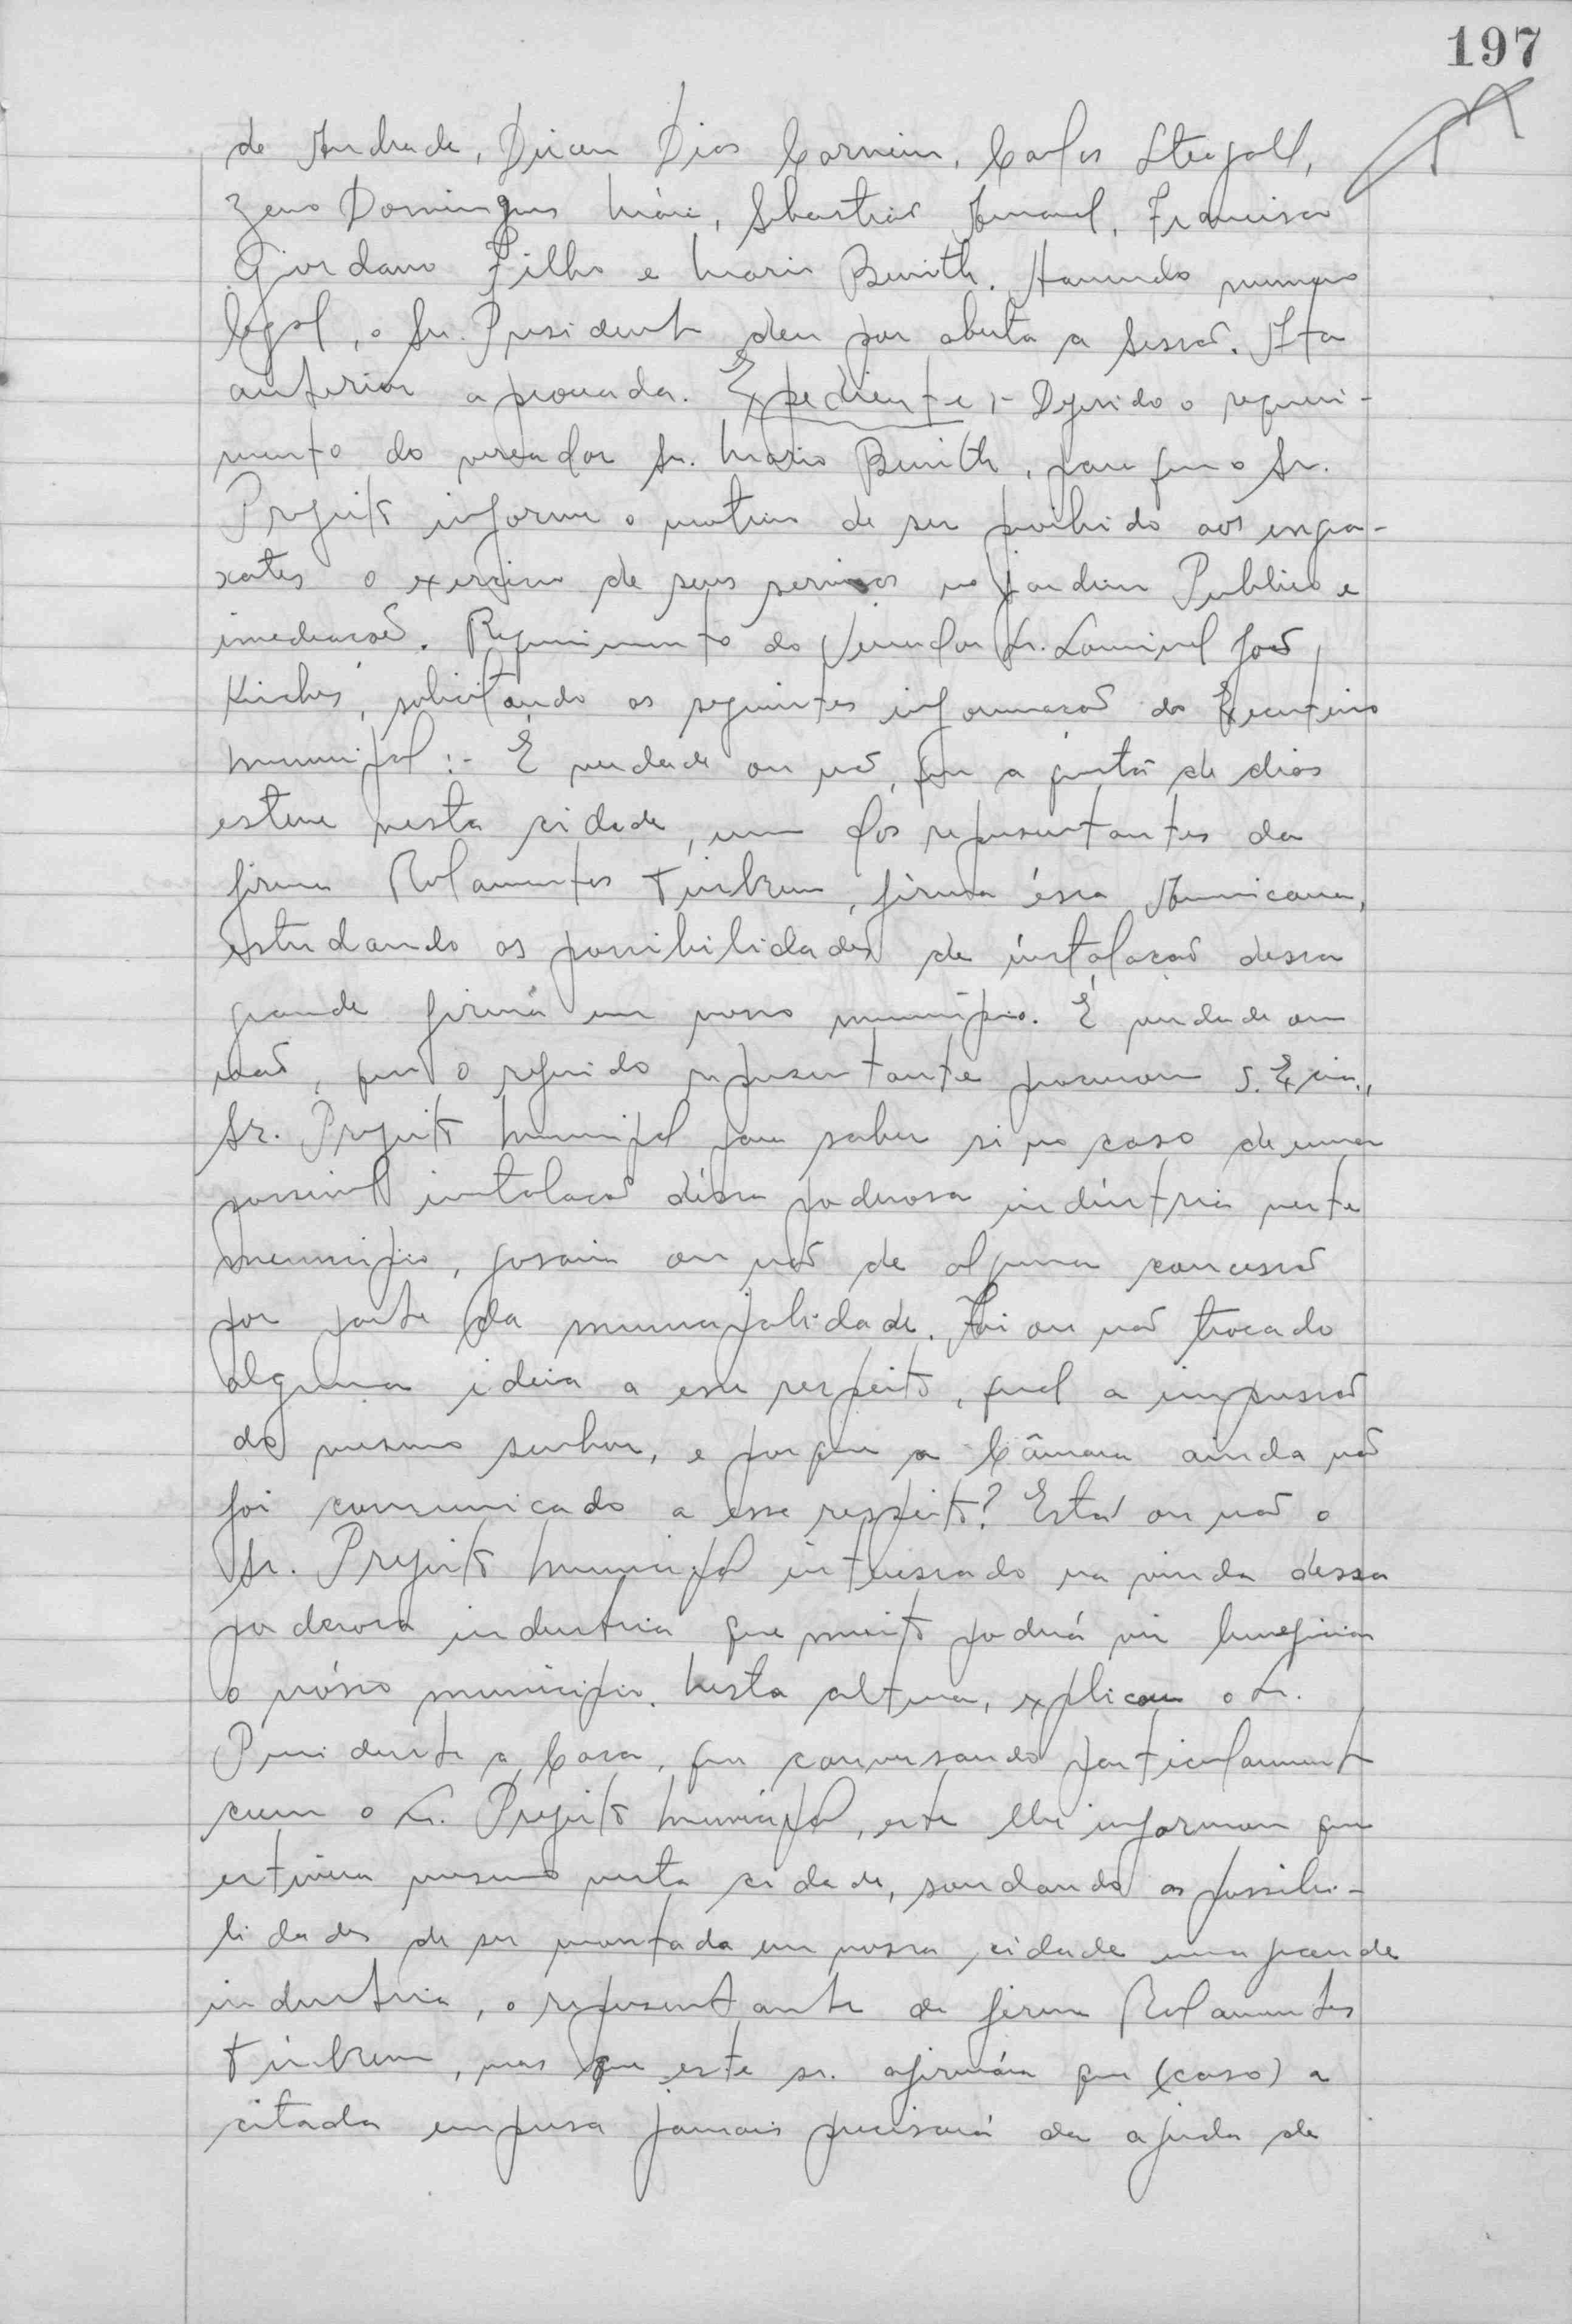 197
de Andrade, Dirceu Dias Carneiro, Carlos Steagall,
Zeno Domingues Máia, Sebastião Amaral, Francisco
Giordano Filho e Mario Benith. Havendo numero
legal, o Sr. Presidente deu por aberta a Sessão. Ata
anterior aprovada. Expediente:- Deferido o requeri-
mento do vereador Sr. Mario Benith, para que o Sr.
Prefeito informe o motivo de ser proibido aos engra-
xates o exercicio de seus serviços no jardim Publico e
imediações. Requerimento do Vereador Sr. Lourival João
Kirches, solicitando as seguintes informações do Executivo
Municipal:- É verdade ou não, que a questão de dias
esteve nesta cidade, um dos representantes da
firma Rolamentos Tinkem, firma éssa Americana,
estudando as possibilidades de instalação dessa
grande firma em nosso município. É verdade ou
não, que o referido representante procurou S. Excia.,
Sr. Prefeito Municipal para saber si no caso de uma
possivel instalação déssa poderosa indústria neste
municipio, gosaria ou não de alguma concessão
por parte da municipalidade. Foi ou não trocado
alguma ideia a esse respeito, qual a impressão
do mesmo senhor, e porque a Câmara ainda não
foi comunicado a esse respeito? Está ou não o
Sr. Prefeito Municipal interessado na vinda dessa
poderosa industria que muito poderá vir beneficiar
o nósso municipio. Nesta altura, explicou o Sr.
Presidente a Casa, que conversando particularmente
com o Sr. Prefeito Municipal, este lhe informou que
estivera mesmo nesta cidade, sondando as possibi-
lidades de ser montada em nossa cidade uma grande
industria, o representante da firma Rolamentos
Tinkem, mas que este sr. afirmára que (caso) a
citada empresa jamais precisará da ajuda de